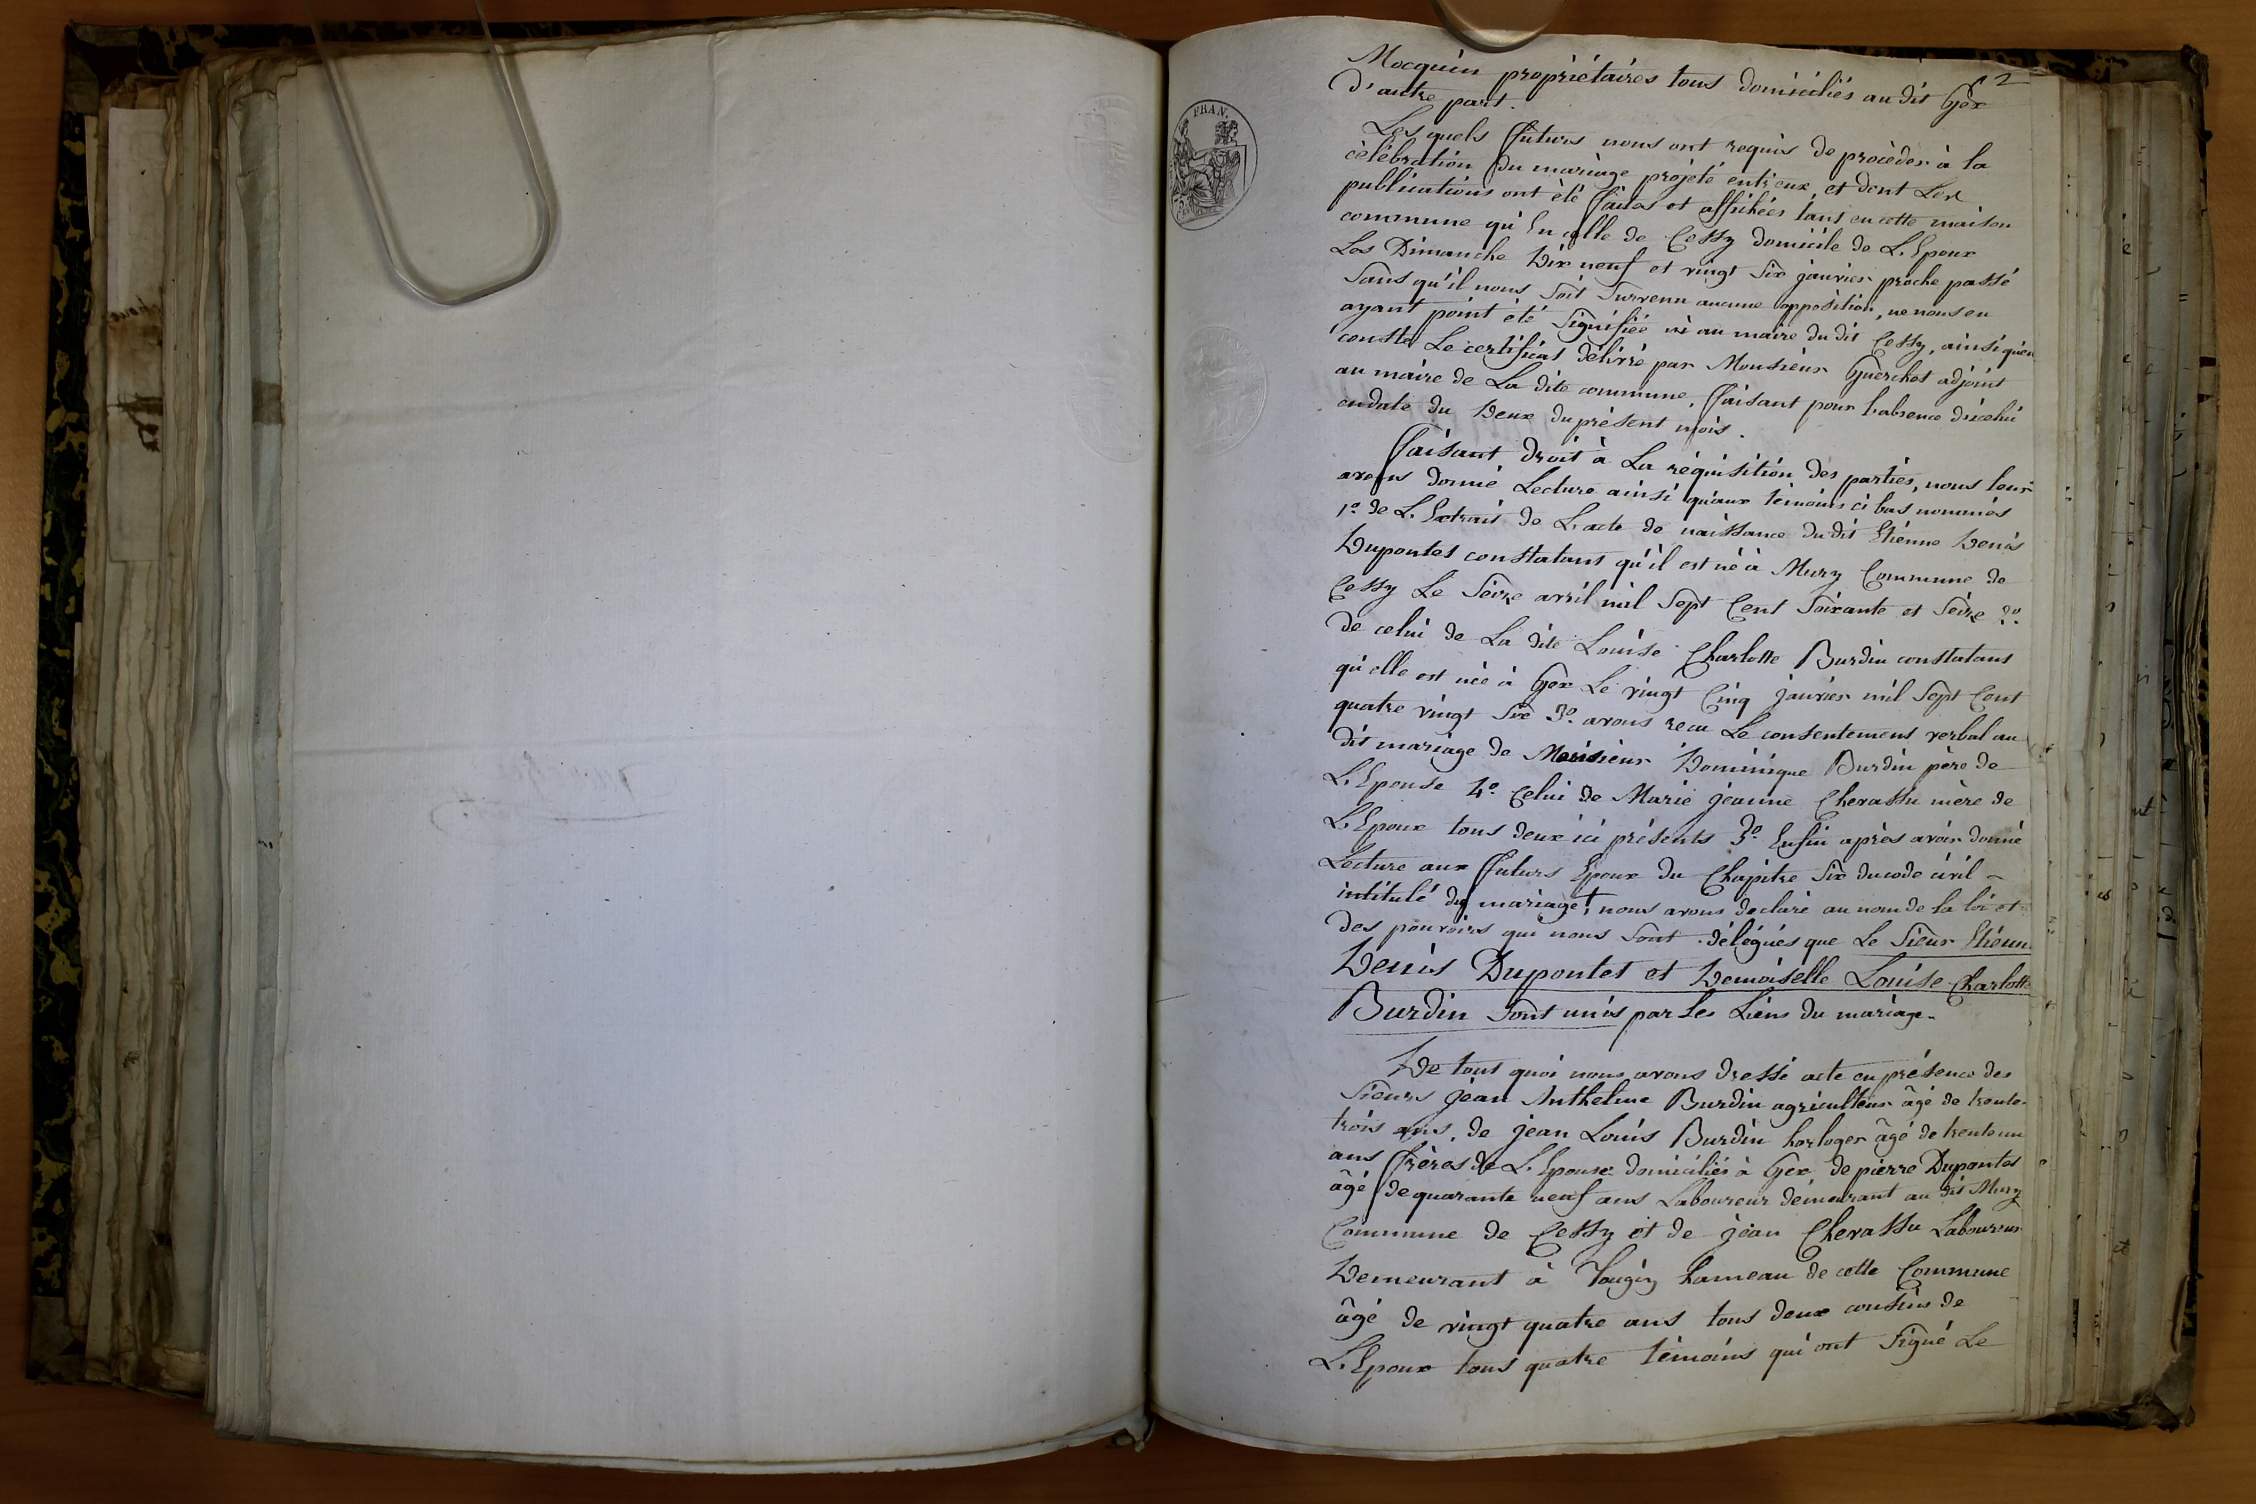 2
FRAN.
Mocquin propriétaires tous domiciliés au dit Gex
D'autre part.
Les quels futurs nous ont requis de procéder à la
célébration du mariage projété entr'eux, et dont Les
publications ont été faites et affichées tant en cette maison
commune qu'En celle de Cessy domicile de L'Epoux
Les Dimanche Dix neuf et vingt Six janvier proche passé
Sans qu'il nous Soit Survenu aucune opposition, ne nous en
ayant point été Signifiée ni au maire du dit Cessy, ainsi qu'en
conste Le certificat délivré par Monsieur Guerchet adjoint
au maire de La dite commune, faisant pour L'absence d'icelui
en date du Deux du présent mois.
faisant Droit à La réquisition des parties, nous leur
avons donné Lecture ainsi qu'aux témoins ci bas nommés
1º. de L'Extrait de L'acte de naissance du dit Etienne Denis
Dupontet constatant qu'il est né à Mury Commune de
Cessy Le Seize avril mil Sept Cent Soixante et Seize 2º.
De celui de La dite Louise Charlotte Burdin constatant
qu'elle est née à Gex Le vingt Cinq janvier mil Sept Cent
quatre vingt Six 3º. avons recu Le consentement verbal au
dit mariage de Monsieur Dominique Burdin père de
L'Epouse 4º. Celui de Marie jeanne Chevassu mère de
L'Epoux tous deux ici présents 5º. Enfin après avoir donné
Lecture aux futurs Epoux du Chapitre Six du code civil
intitulé du mariage, nous avons declaré au nom de la loi et
des pouvoirs qui nous Sont délégués que Le Sieur Etienne
Denis Dupontet et Demoiselle Louise Charlotte
Burdin Sont unis par Les Liens du mariage.
De tout quoi nous avons Dressé acte en présence des
Sieurs jean Anthelme Burdin agriculteur âgé de trente
trois ans, de jean Louis Burdin horloger âgé de trente un
ans frères de L'Epouse domiciliés à Gex de pierre Dupontet
âgé de quarante neuf ans Laboureur demeurant au dit Mury
Commune de Cessy et de jean Chevassu Laboureur
Demeurant à Tougin hameau de cette Commune
âgé de vingt quatre ans tous deux cousins de
L'Epoux tous quatre témoins qui ont Signé Le